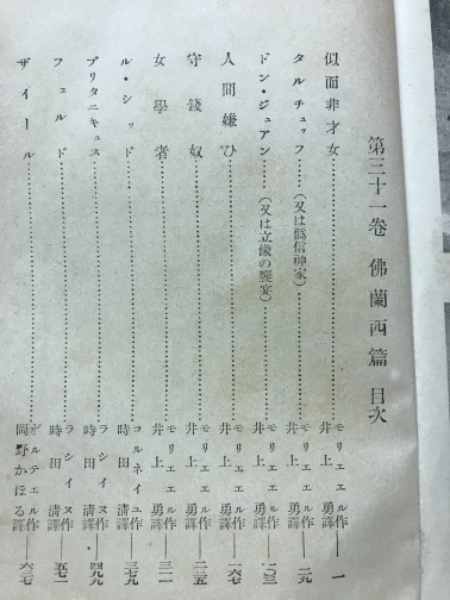 第三十一卷 佛蘭西篇 目次
似而非才女……………モリエエル作 井上勇譯――一
タルチュッフ……(又は僞信神家)……モリエエル作 井上勇譯――二九
ドン・ジュアン……(又は立像の饗宴)……モリエエル作 井上勇譯――一〇三
人間嫌ひ……………モリエエル作 井上勇譯――一六七
守錢奴……………モリエエル作 井上勇譯――二三五
女學者……………モリエエル作 井上勇譯――三一一
ル・シッド……………コルネイユ作 時田淸譯――三七九
ブリタニキュス……………ラシイヌ作 時田淸譯――四九九
フェルド……………ラシイヌ作 時田淸譯――五七一
ザイール……………ヺルテエル作 岡野かほる譯――六三七